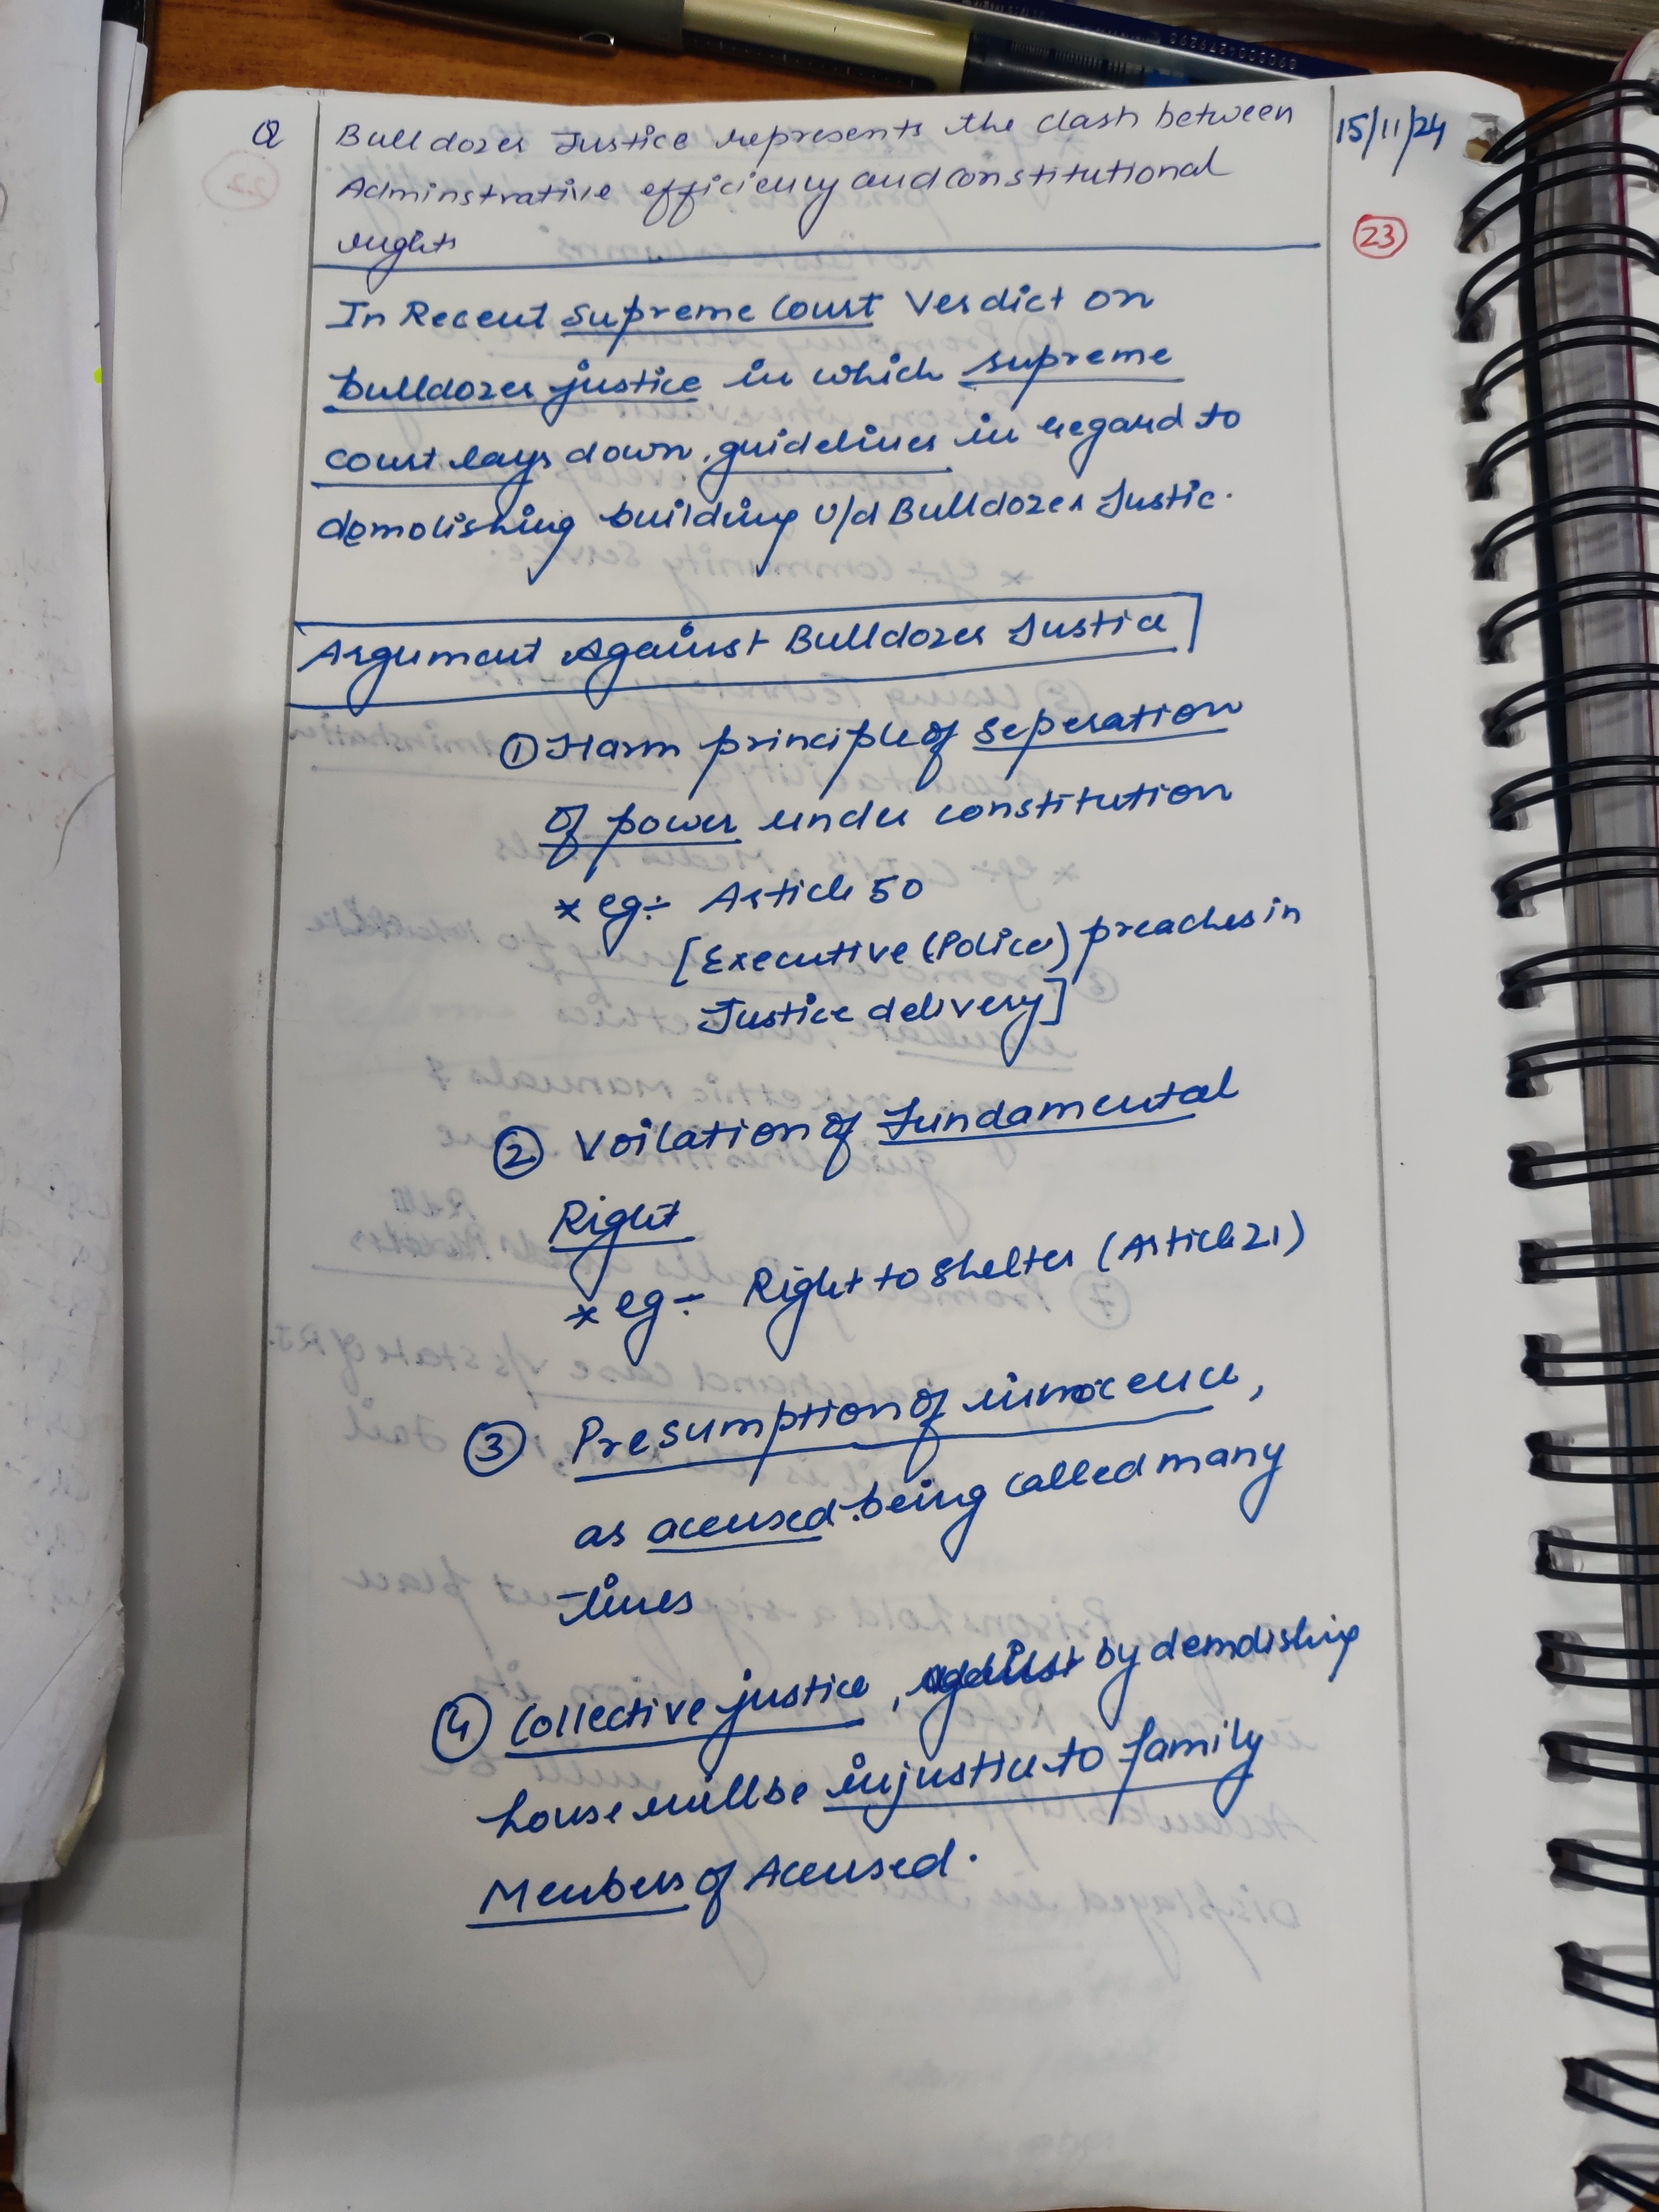 Q Bulldozer Justice represents the clash between 15/11/24
Adminstrative efficiency and constitutional
rights
23
In Recent Supreme Court Verdict on
bulldozer justice in which supreme
court lays down guidelines in regard to
demolishing building u/d Bulldozer Justic.
Argument Against Bulldozer Justice
① Harm principle of seperation
of power under constitution
* eg:- Article 50
[Executive (Police) preaches in
Justice delivery]
② Voilation of Fundamental
Right
* eg:- Right to Shelter (Article 21)
③ Presumption of innocence,
as accused being called many
times
④ Collective justice, by demolishing
house will be injustice to family
Members of Accused.